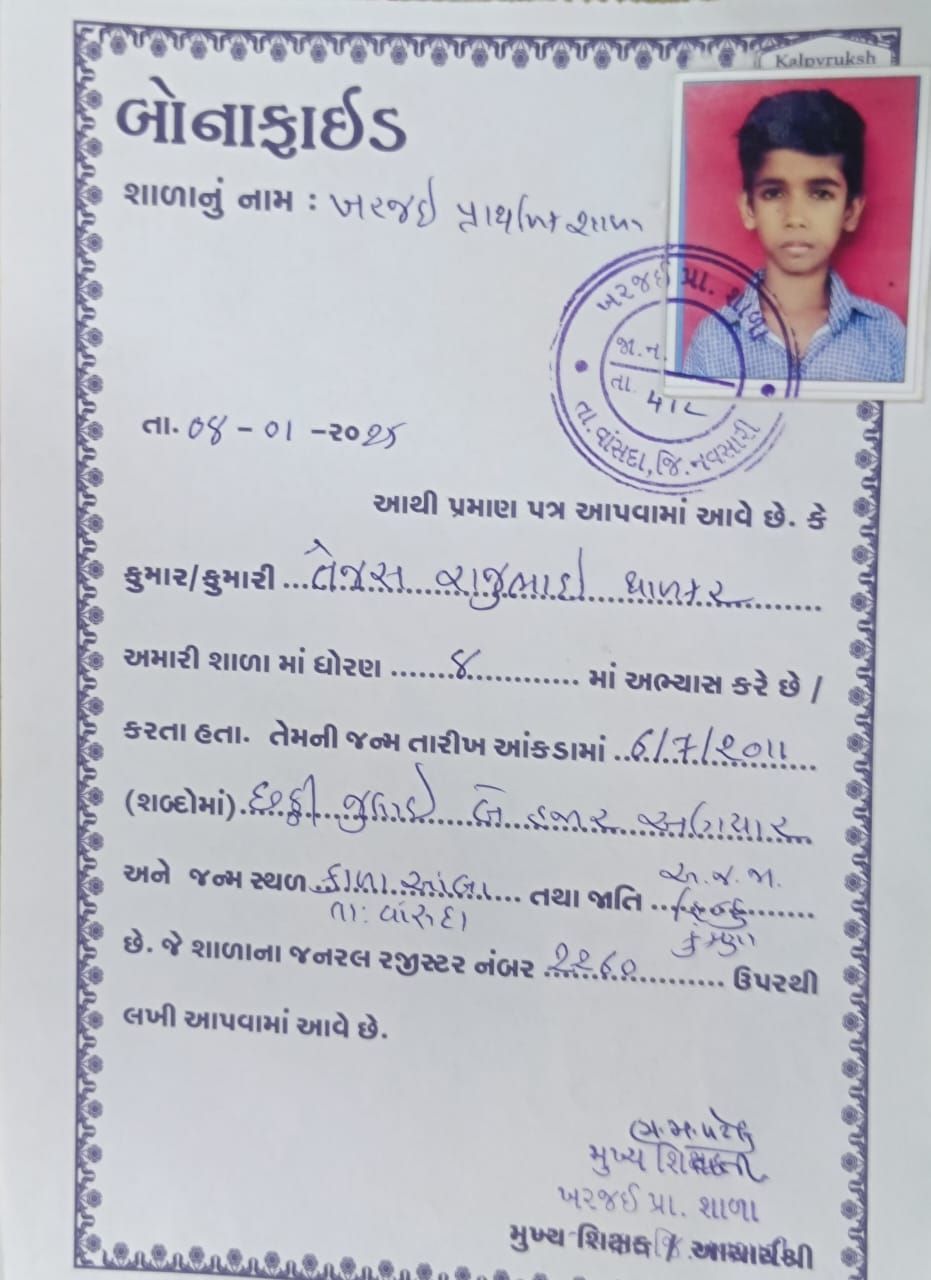 Kalpvruksh
બોનાફાઈડ
શાળાનું નામ : ખરજઇ પ્રાથમિક શાળા
ખરજઈ પ્રા. શાળા
જા.ન.
તા. ૫૧૮
તા. વાંસદા, જિ. નવસારી
તા. ૦૪ - ૦૧ - ૨૦૨૫
આથી પ્રમાણ પત્ર આપવામાં આવે છે. કે
કુમાર/કુમારી ... તેજસ રાજુભાઇ ધાળકર ...
અમારી શાળા માં ધોરણ ...... ૪ ............ માં અભ્યાસ કરે છે /
કરતા હતા. તેમની જન્મ તારીખ આંકડામાં .. ૬/૭/૨૦૧૧
(શબ્દોમાં). છઠ્ઠી જુલાઇ બે હજાર અગિયાર
અ.જ.જા.
અને જન્મ સ્થળ . કાળાઆંબા ... તથા જાતિ ... હિન્દુ .......
તા: વાંસદા કુંકણા
છે. જે શાળાના જનરલ રજીસ્ટર નંબર ... ૨૨૬૦ ............ ઉપરથી
લખી આપવામાં આવે છે.
મુખ્ય શિક્ષકની
ખરજઈ પ્રા. શાળા
મુખ્ય શિક્ષક / આચાર્યશ્રી